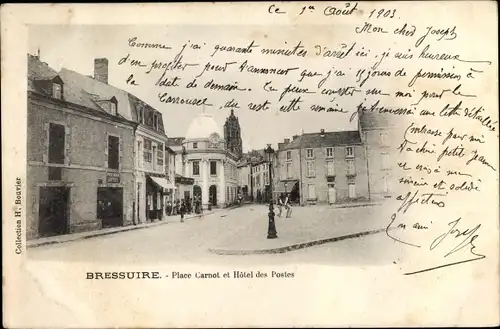 Ce 1er Août 1903
Mon cher Joseph
Comme j'ai quarante minutes d'arrêt ici, je suis heureux
d'en profiter pour t'annoncer que j'ai 15 jours de permission à
la date de demain. Tu peux compter sur moi pour le
Carrousel, du reste cette semaine je t'enverrai une lettre détaillée
sincère et solide
affection.
ton ami Joseph
Collection H. Bouvier
BRESSUIRE. - Place Carnot et Hôtel des Postes